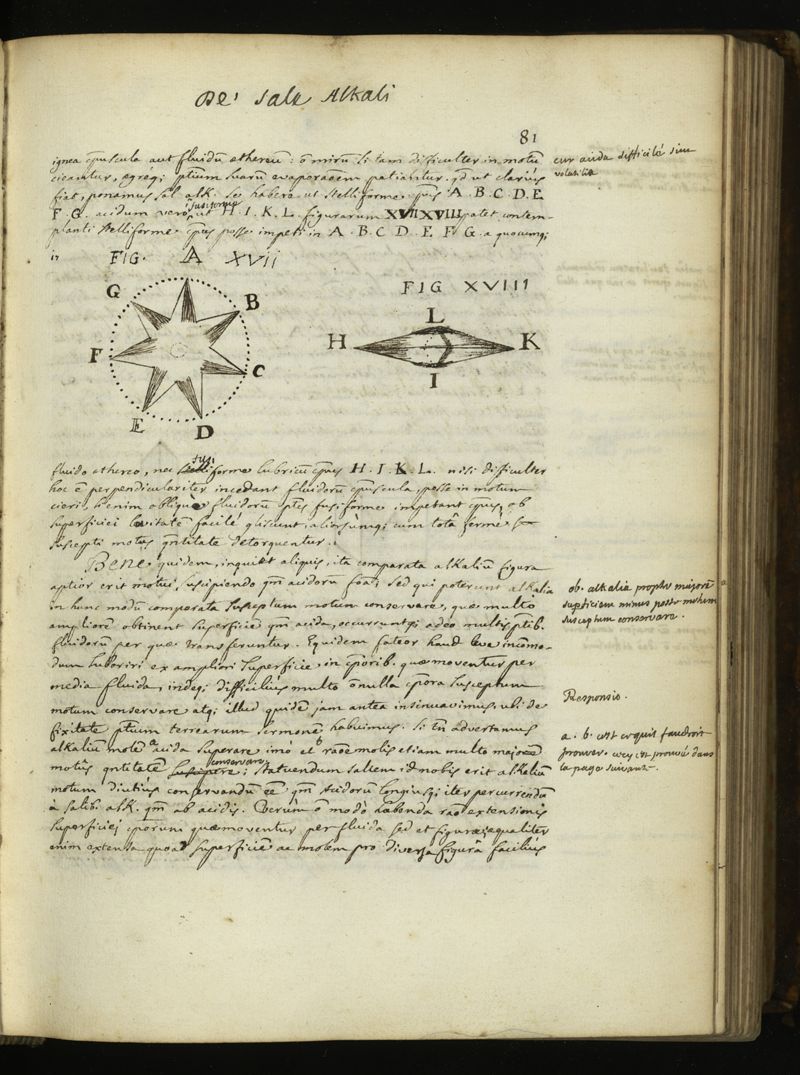 De' Sale Alkali
81
ignea cp̃uscula aut fluidũ ethereũ : õ mirũ si tam difficulter in motũ
cieantur, ægreq; ptium suarũ evaporaõem patiantur. qd ut clariùs
fiat, ponamus sal alk. se habere ut stelliforme cp̃us A. B. C. D. E.
F. G. acidum verò ut fusiforme H. I. K. L. figurarum XVII XVIII patet contem-
planti stelliforme cp̃us posse impeti in A. B. C D. E. F. G. a quocumq;
cur acida difficilè sint
volatilia
FIG. XVII
A
B
C
D
E
F
G
FIG XVIII
H
L
K
I
fluido ethereo, nec fusiforme lubricũ cp̃us H. I. K. L. nisi difficulter
hoc ẽ perpendiculariter incedant fluidorũ cp̃uscula, posse in motum
cieri, si enim obliquè fluidorũ ptes fusiforme impetant cp̃us, ob
superficiei lævitatẽ facilè glìscunt, aliorsùmq; cum totâ ferme
suscepti motus qntitate detorquentur.
Bene quidem, inquiet aliquis, ita comparata alkaliũ figura
aptior erit motui suscipiendo qm̃ acidorũ sed qui poterunt alkalia
in hunc modũ comparata susceptum motum conservare, quæ multo
ampliorẽ obtinent superficiẽ qm̃ acida, occurruntq; adeo multis ptib.
fluidorũ per quæ transferuntur. Equidem fateor haud leve incõmo-
dum suboriri ex ampliori superficie in cp̃orib. quæ moventur per
media fluida, indeq; difficiliùs multo õnulla cp̃ora susceptum
motum conservare atq; illud quidẽ jam antea insinuavimus ubi de
fixitate ptium terrearum sermonẽ habuimus : si tñ advertamus
alkaliũ molẽ acida superare imò et raõe molis etiam multo majorẽ
motûs qntitatẽ conservare ; statuendum saltem id nobis erit alkaliũ
motum diutiùs conservandũ ẽe qm̃ acidorũ longiusq; iter percurrendũ
à salib. alk. qm̃ ab acidis. Verùm õ modò habenda raõ extensionis
superficiei cp̃orum quæ moventur per fluida sed et figuræ ; æqualiter
enim extensa quoad superficiẽ ac molem pro diversâ figurâ faciliùs
ob. alkalia propter majorẽ
supficiem minus posse motum
susceptum conservare.
Responsio.
a. b. est ce qu'il faudroit
prouver. cecy est prouvé dans
la page suivante.